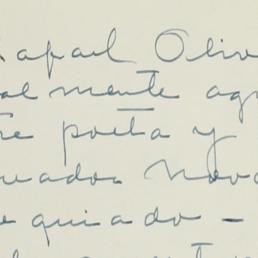 Rafael Oliv
almente agr
re poeta y
uador Nova
equiado -